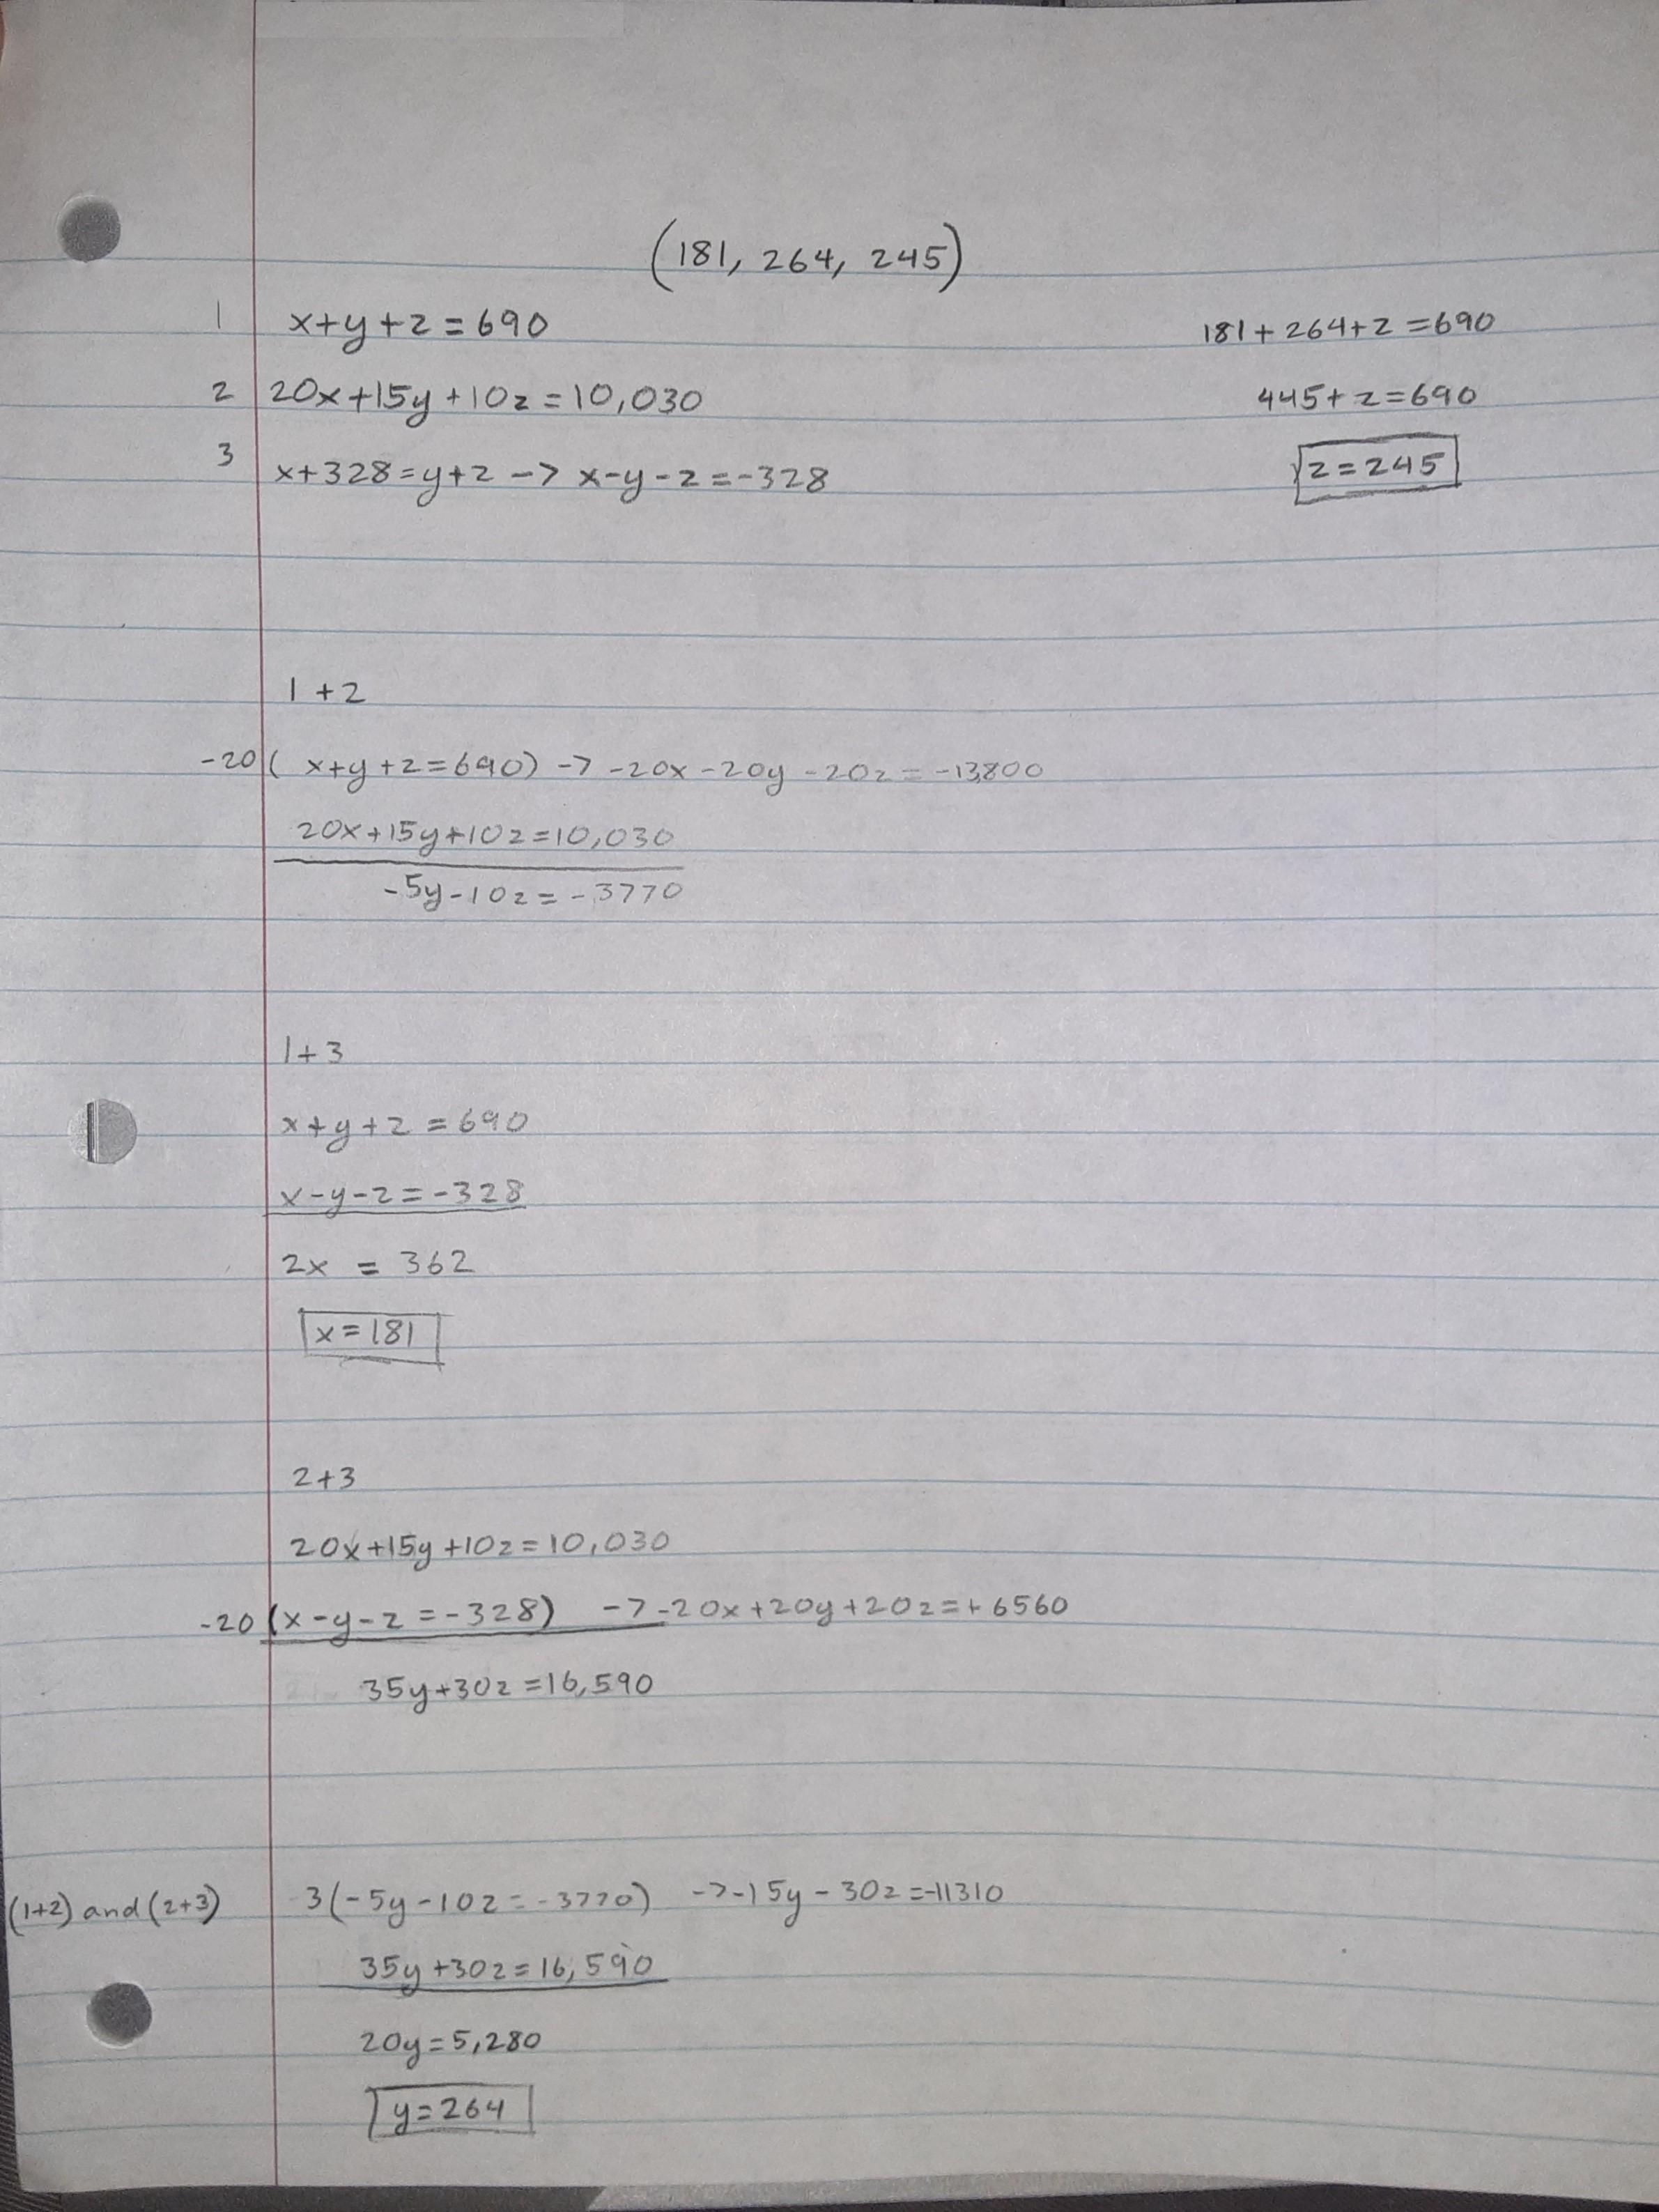 (181, 264, 245)
1 x+y+z=690
2 20x+15y+10z=10,030
3 x+328=y+z -> x-y-z=-328
181+264+z=690
445+z=690
z=245
1+2
-20( x+y+z=690) -> -20x-20y-20z=-13,800
20x+15y+10z=10,030
-5y-10z=-3770
1+3
x+y+z=690
x-y-z=-328
2x = 362
x=181
2+3
20x+15y+10z=10,030
-20(x-y-z=-328) -> -20x+20y+20z=+6560
35y+30z=16,590
(1+2) and (2+3) 3(-5y-10z=-3770) -> -15y-30z=-11310
35y+30z=16,590
20y=5,280
y=264